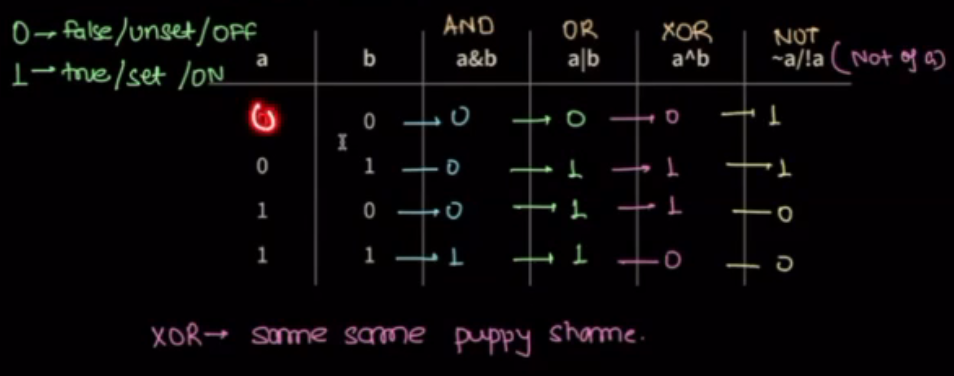 0→false/unset/OFF
1→true/set/ON
AND OR XOR NOT
a b a&b a|b a^b ~a/!a (Not of a)
0 0 → 0 → 0 → 0 → 1
0 1 → 0 → 1 → 1 → 1
1 0 → 0 → 1 → 1 → 0
1 1 → 1 → 1 → 0 → 0
XOR→ same same puppy shame.